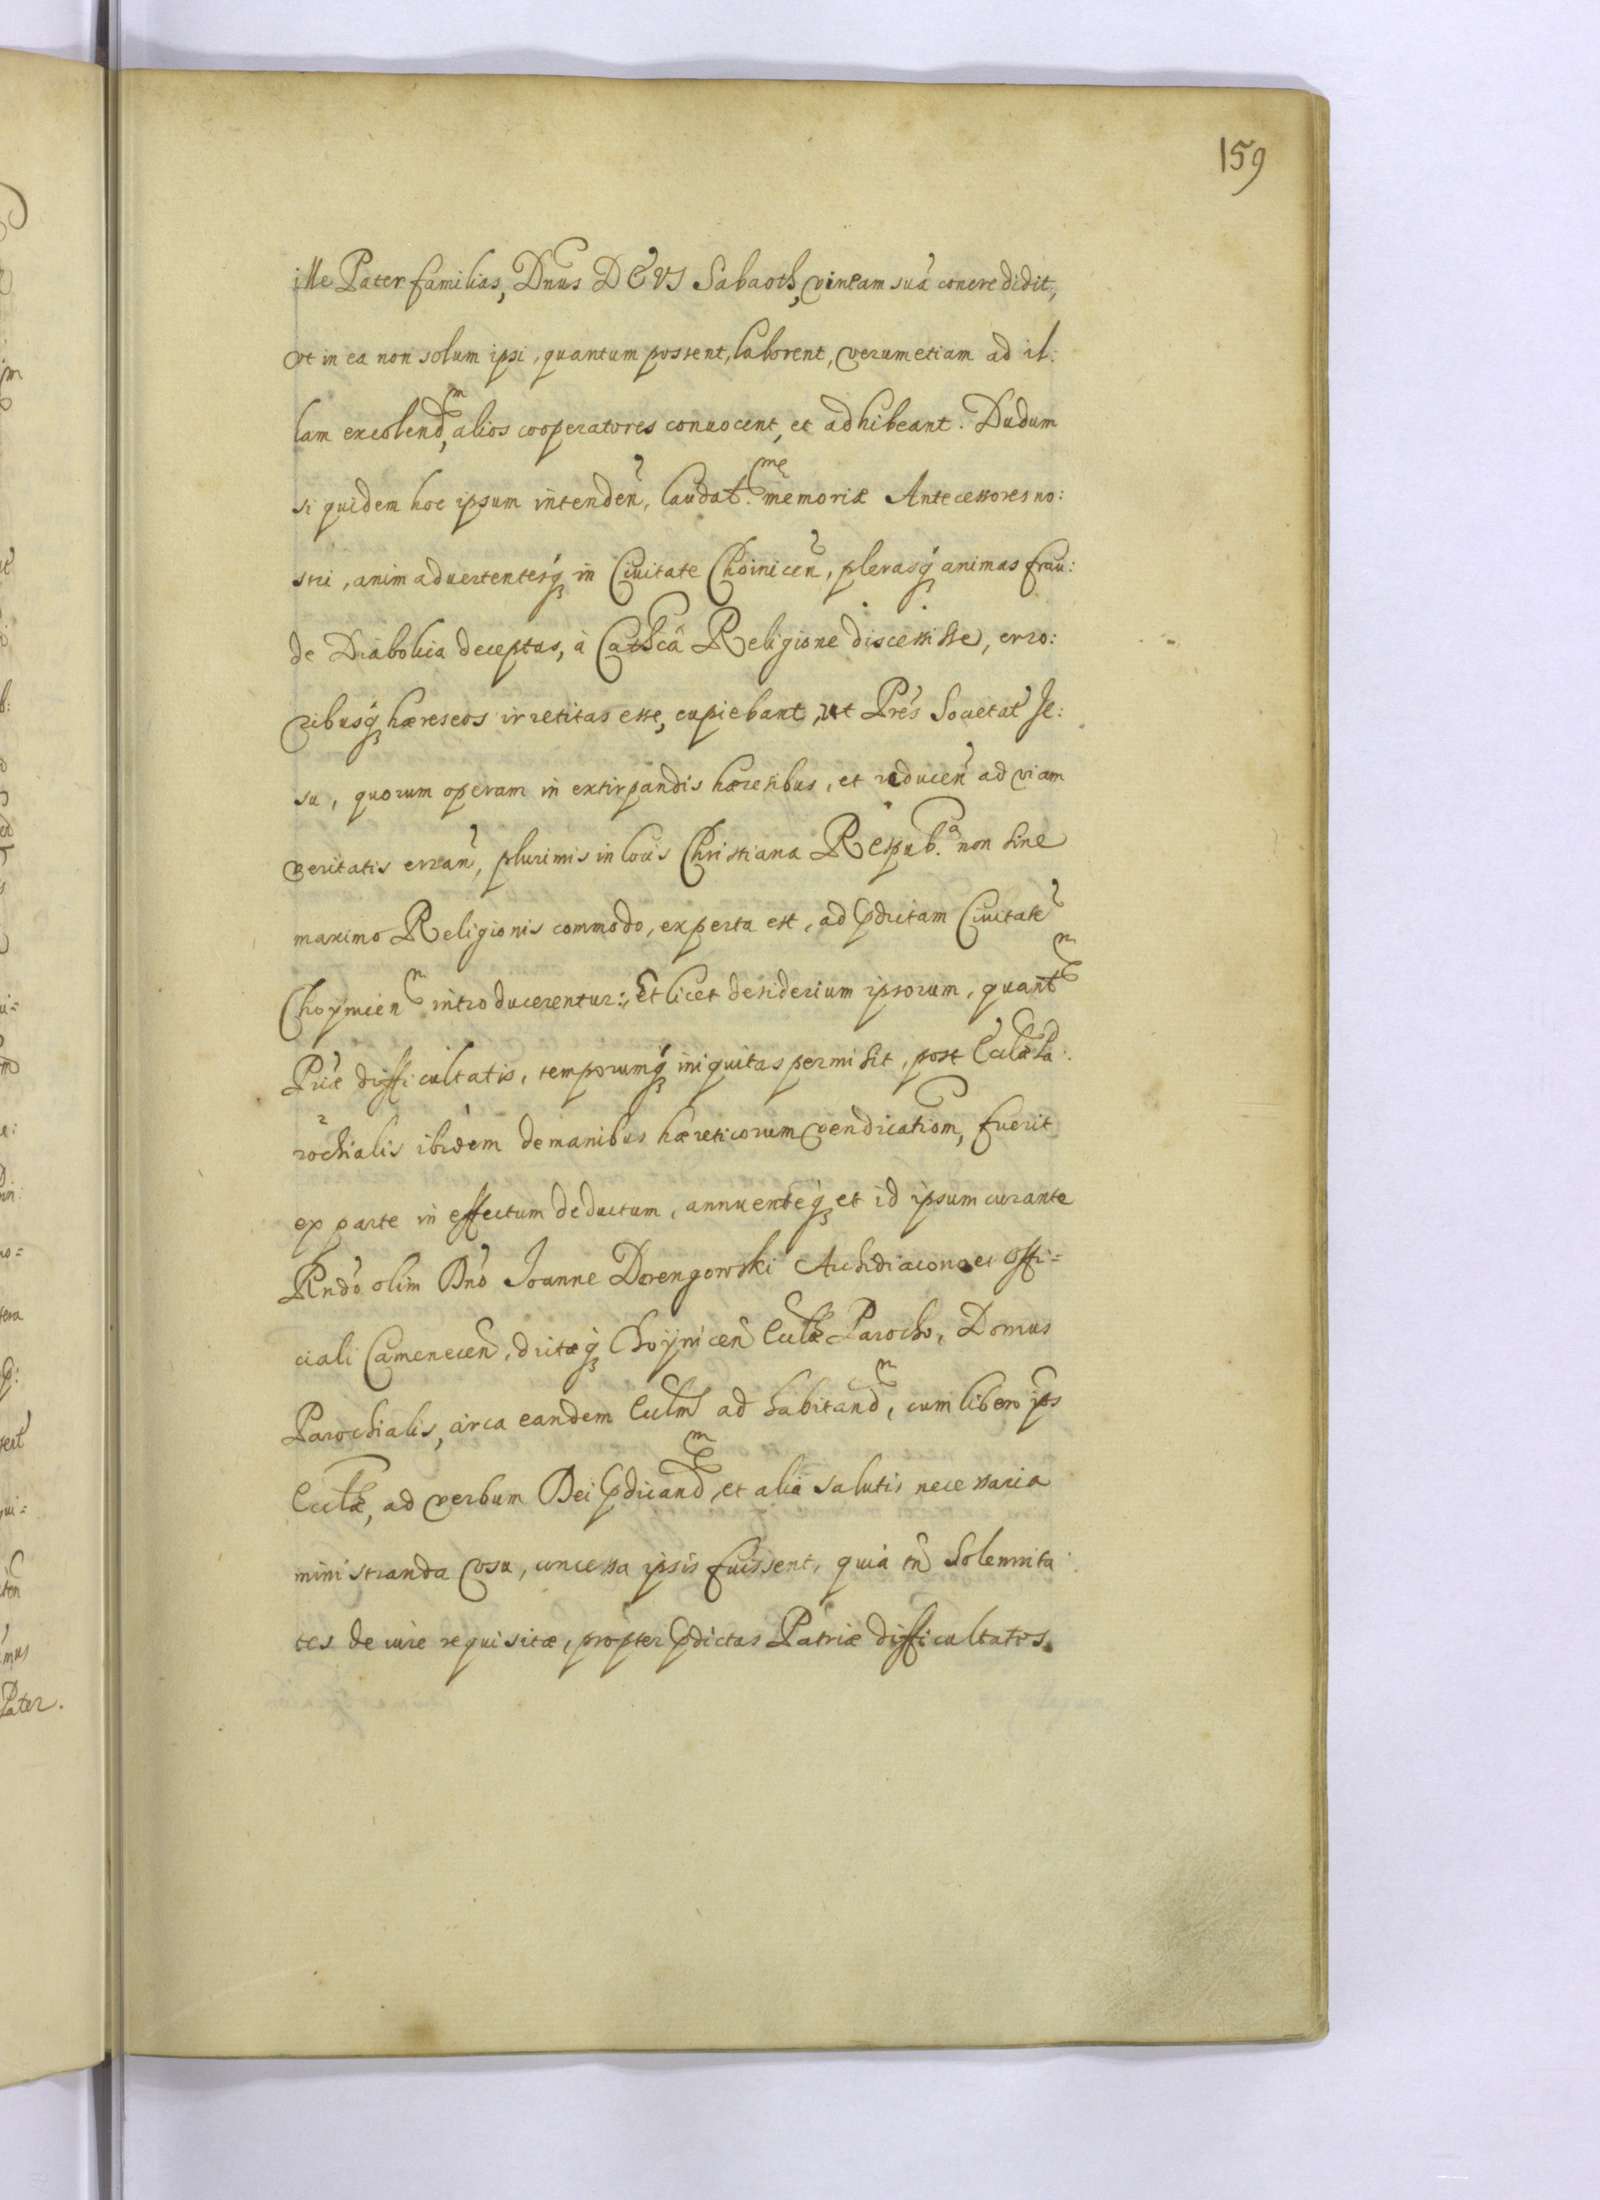 159
ille Pater familias, Dnus DEVS Sabaoth, vineam suã concredidit,
vt in ea non solum ipsi, quantum possent, laborent, verumetiam ad il:
lam excolend<sup>m</sup>, alios cooperatores conuocent, et adhibeant. Dudum
si quidem hoc ipsum intenden, laudat<sup>mę</sup> memoriæ Antecessores no:
stri, animaduertentesq́ in Ciuitate Choinicen, plerasq́ animas frau:
de Diabolica deceptas, à Cathcâ Religione discessisse, erro:
ribusq́ hæreseos irretitas esse, cupiebant, ut Prés Societat Je:
su, quorum operam in extirpandis hæresibus, et reducen ad viam
veritatis erran, plurimis in locis Christiana Respub.<sup>a</sup> non sine
maximo Religionis commodo, experta est, ad pdictam Ciuitate
Choynicen<sup>m</sup> introducerentur: Et licet desiderium ipsorum, quant<sup>m</sup>
Priæ difficultatis, temporumq́ iniquitas permisit, post Ecclæ Pa:
rochialis ibidem de manibus hæreticorum vendicatiom, fuerit
ex parte in effectum deductum, annuenteq́ et id ipsum curante
Rndo olim Dnó Joanne Dorengowski Archidiacono et Offi=
ciali Camenecen, dictæq́ Choynicen Ecclæ Parocho, Domus
Parochialis, circa eandem Ecclm ad habitand<sup>m</sup>, cum libero ips
Ecclæ, ad verbum Dei pdicand<sup>m</sup>, et alia salutis necessaria
ministranda vsu, concessa ipsis fuissent, quia tñ Solemnita
tes de iure requisitæ, propter pdictas Patriæ difficultates